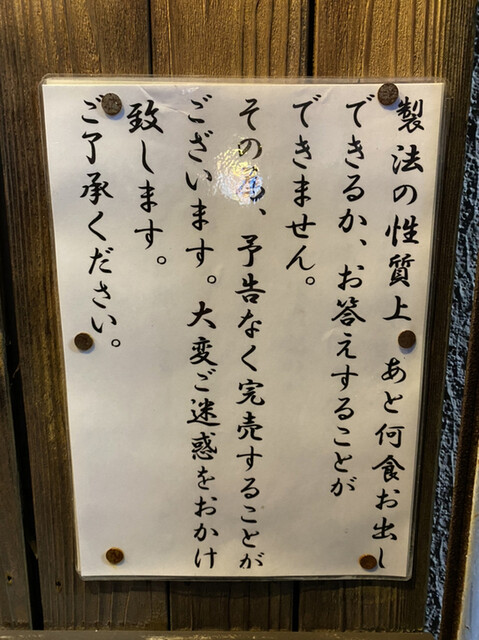 製法の性質上 あと何食お出し
できるか、お答えすることが
できません。
その為、予告なく完売することが
ございます。大変ご迷惑をおかけ
致します。
ご了承ください。